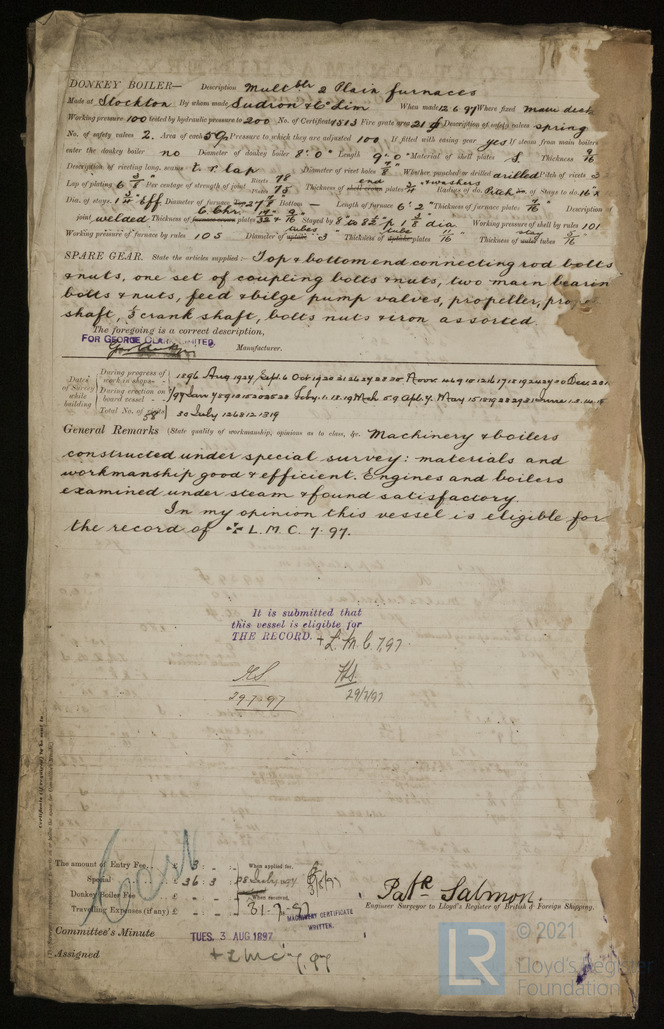 DONKEY BOILER— Description Multble 2 Plain furnaces
Made at Stockton By whom made Sudron & Co Lim When made 12.6.97 Where fixed main deck
Working pressure 100 tested by hydraulic pressure to 200 No. of Certificate 1513 Fire grate area 21 ft Description of safety valves spring
No. of safety valves 2. Area of each 5.9 Pressure to which they are adjusted 100 If fitted with easing gear yes If steam from main boilers
enter the donkey boiler no Diameter of donkey boiler 8'. 0" Length 9'. 0" Material of shell plates S Thickness 9/16
Description of riveting long. seams t. r. lap Diameter of rivet holes 7/8" Whether punched or drilled drilled Pitch of rivets 3
Lap of plating 6 3/8 Per centage of strength joint Rivets 78 Plates 75 Thickness of end plates 3/4 + washers Radius of do. Pitch No. of Stays to do. 16 x
Dia. of stays. 1 3/4 eff Diameter of furnace 27 3/4 Bottom — Length of furnace 6'. 2" Thickness of furnace plates 7/16 Description of
joint welded Thickness of C. Chr: plates 17/32 & 9/16 Stayed by 8" x 8 1/2" p 1 3/8 dia Working pressure of shell by rules 101
Working pressure of furnace by rules 105 Diameter of tubes 3" Thickness of tube plates 11/16 Thickness of stay tubes 5/16
SPARE GEAR. State the articles supplied:— Top & bottom end connecting rod bolts
& nuts, one set of coupling bolts & nuts, two main bearin
bolts & nuts, feed & bilge pump valves, propeller, prope
shaft, 1/3 crank shaft, bolts nuts & iron assorted.
The foregoing is a correct description,
FOR GEORGE CLARK LIMITED. Manufacturer.
Dates of Survey while building
During progress of work in shops— 1896 Aug 19 27 Sept. 6
During erection on board vessel—
Total No. of visits 58 30 July 1 2 6 8 12 13 19
General Remarks (State quality of workmanship, opinions as to class, &c. Machinery & boilers
constructed under special survey: materials and
workmanship good & efficient. Engines and boilers
examined under steam & found satisfactory.
In my opinion this vessel is eligible for
the record of L. M. C. 7. 97.
It is submitted that
this vessel is eligible for
THE RECORD. + L. M. C. 7,97.
29.7.97 29/7/97
Certificate (if required) to be sent to
The amount of Entry Fee.. £ 3 : : When applied for,
Special .. £ 36 : 3 : 28 July 1897
Donkey Boiler Fee .. £ : : When received,
Travelling Expenses (if any) £ : : 31.7.97
MACHINERY CERTIFICATE
WRITTEN.
Patk Salmon.
Engineer Surveyor to Lloyd's Register of British & Foreign Shipping.
Committee's Minute TUES. 3 AUG 1897
Assigned + L M C 7,97
LR © 2021
Lloyd's Register
Foundation